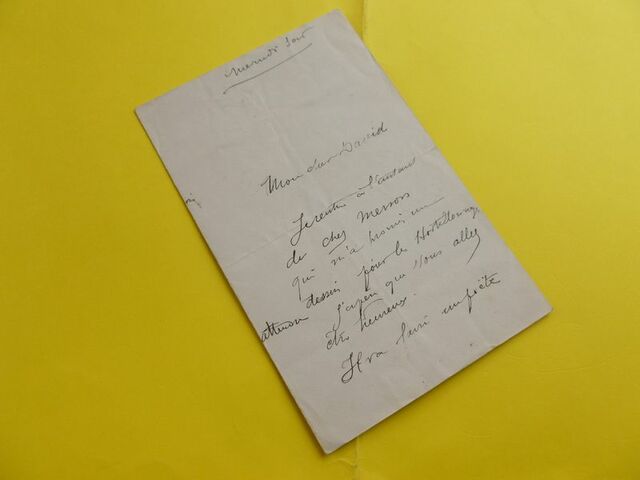 Mercredi soir
Mon cher David
Je rentre à l'instant
de chez Mersors
qui m'a promis un
dessin pour les
J'espère que vous allez
être heureux.
Il va faire un poète